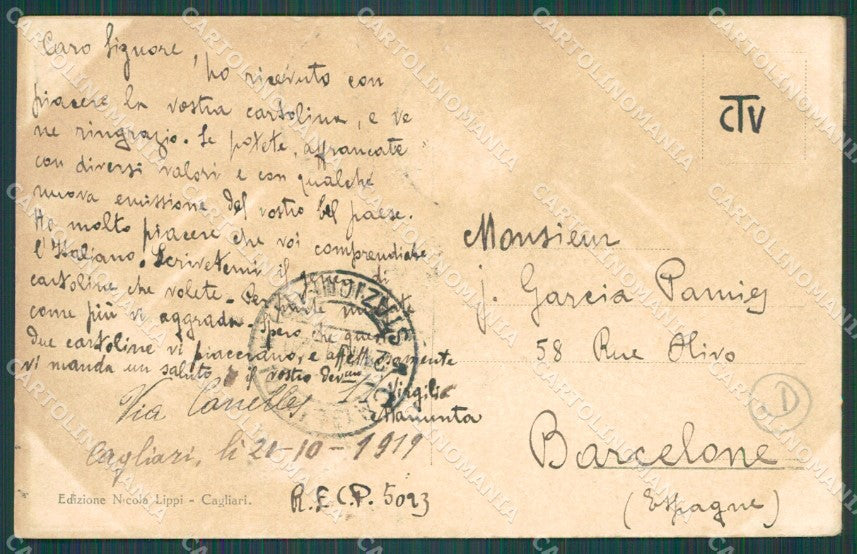 Caro Signore, ho ricevuto con
piacere la vostra cartolina, e ve
ne ringrazio. Se potete, affrancate
con diversi valori e con qualche
nuova emissione del vostro bel paese.
Ho molto piacere che voi comprendiate
l'Italiano. Scrivetemi il genere di
cartoline che volete. Per parte mia
come più vi aggrada. Spero che queste
due cartoline vi piacciano, e affettuosamente
vi manda un saluto il vostro
Virgilio
Via
Cagliari, li 21-10-1919
Edizione Nicola Lippi - Cagliari.
R.E.C.P. 5093
CTV
Monsieur
J. Garcia Pamies
58 Rue Olivo
Barcelone
(Espagne)
D
CARTOLINOMANIA